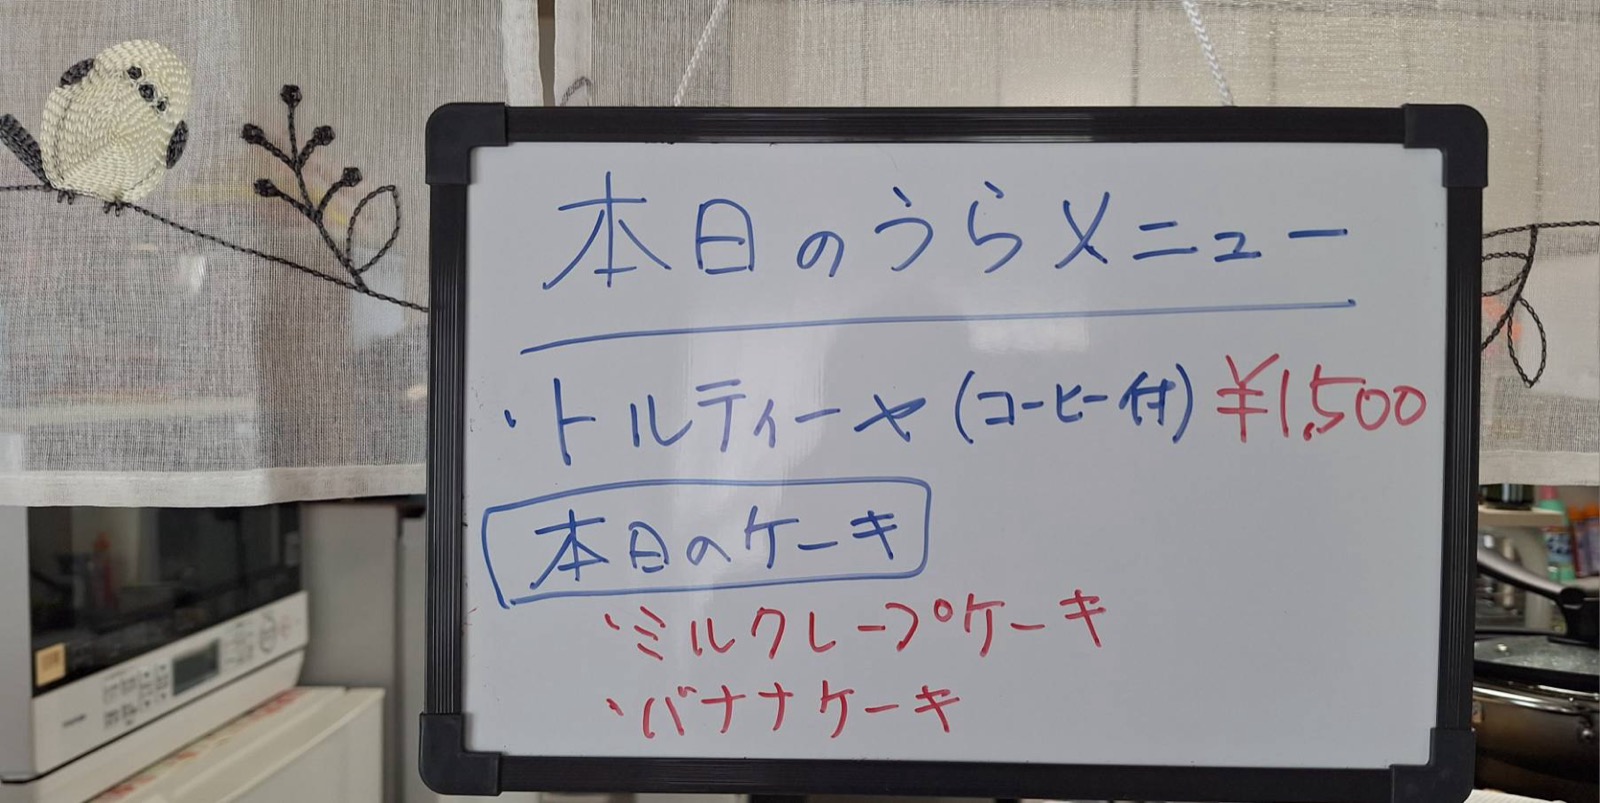 本日のうらメニュー
・トルティーヤ(コーヒー付) ¥1,500
本日のケーキ
・ミルクレープケーキ
・バナナケーキ